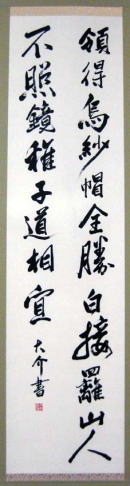 領得烏紗帽全勝白接䍦山人
不照鏡稚子道相宜
大介書